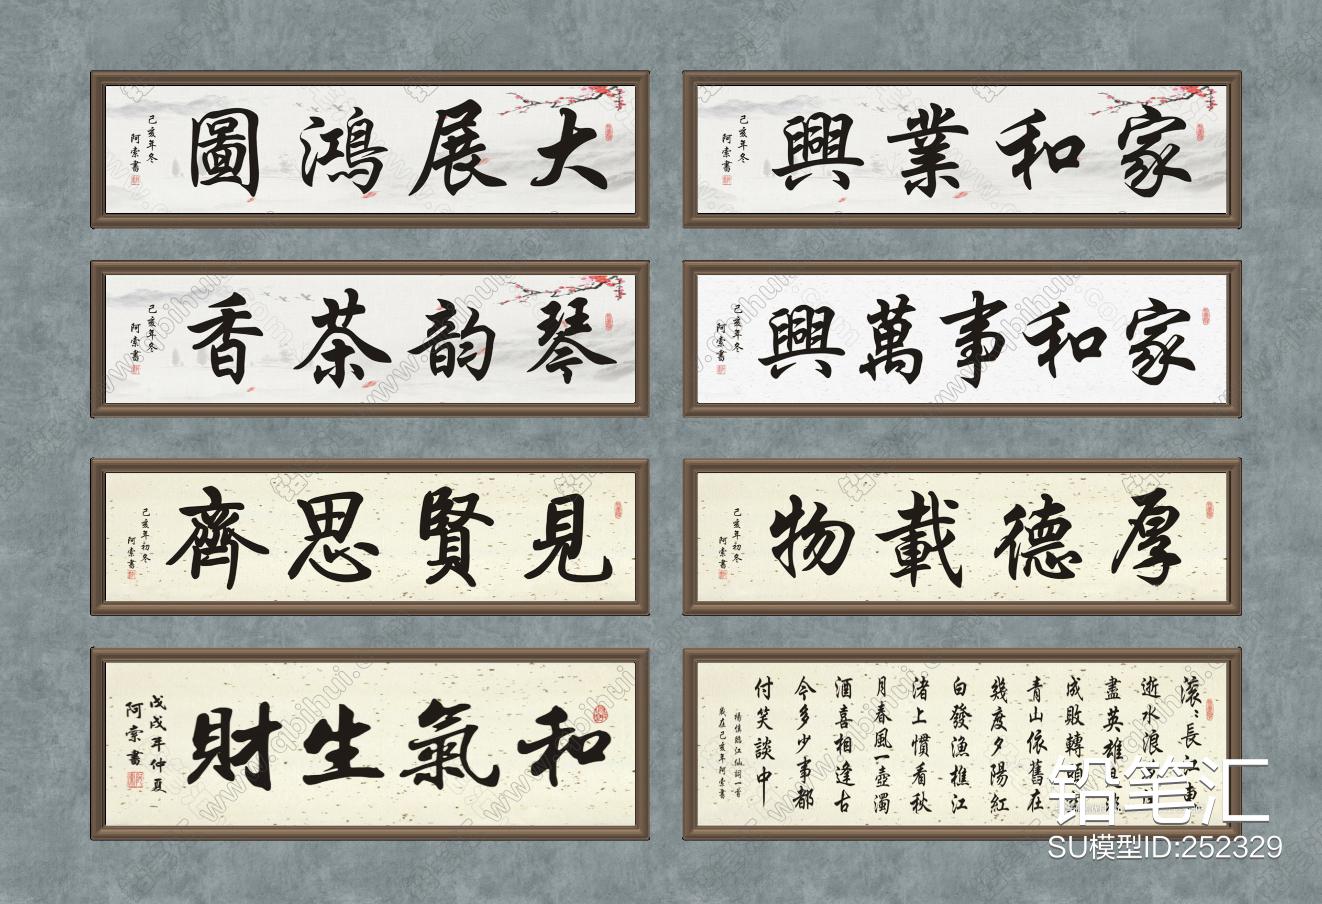 大展鴻圖
己亥年冬
阿索書
家和業興
己亥年冬
阿索書
琴韵茶香
己亥年冬
阿索書
家和事萬興
己亥年冬
阿索書
見賢思齊
己亥年初冬
阿索書
厚德載物
己亥年初冬
阿索書
和氣生財
戊戌年仲夏
阿索書
滚〻長江東
逝水浪
盡英雄是
成敗轉頭
青山依舊在
幾度夕陽紅
白發漁樵江
渚上慣看秋
月春風一壺濁
酒喜相逢古
今多少事都
付笑談中
楊慎臨江仙詞一首
歲在己亥年阿索書
铅笔汇
SU模型ID:252329